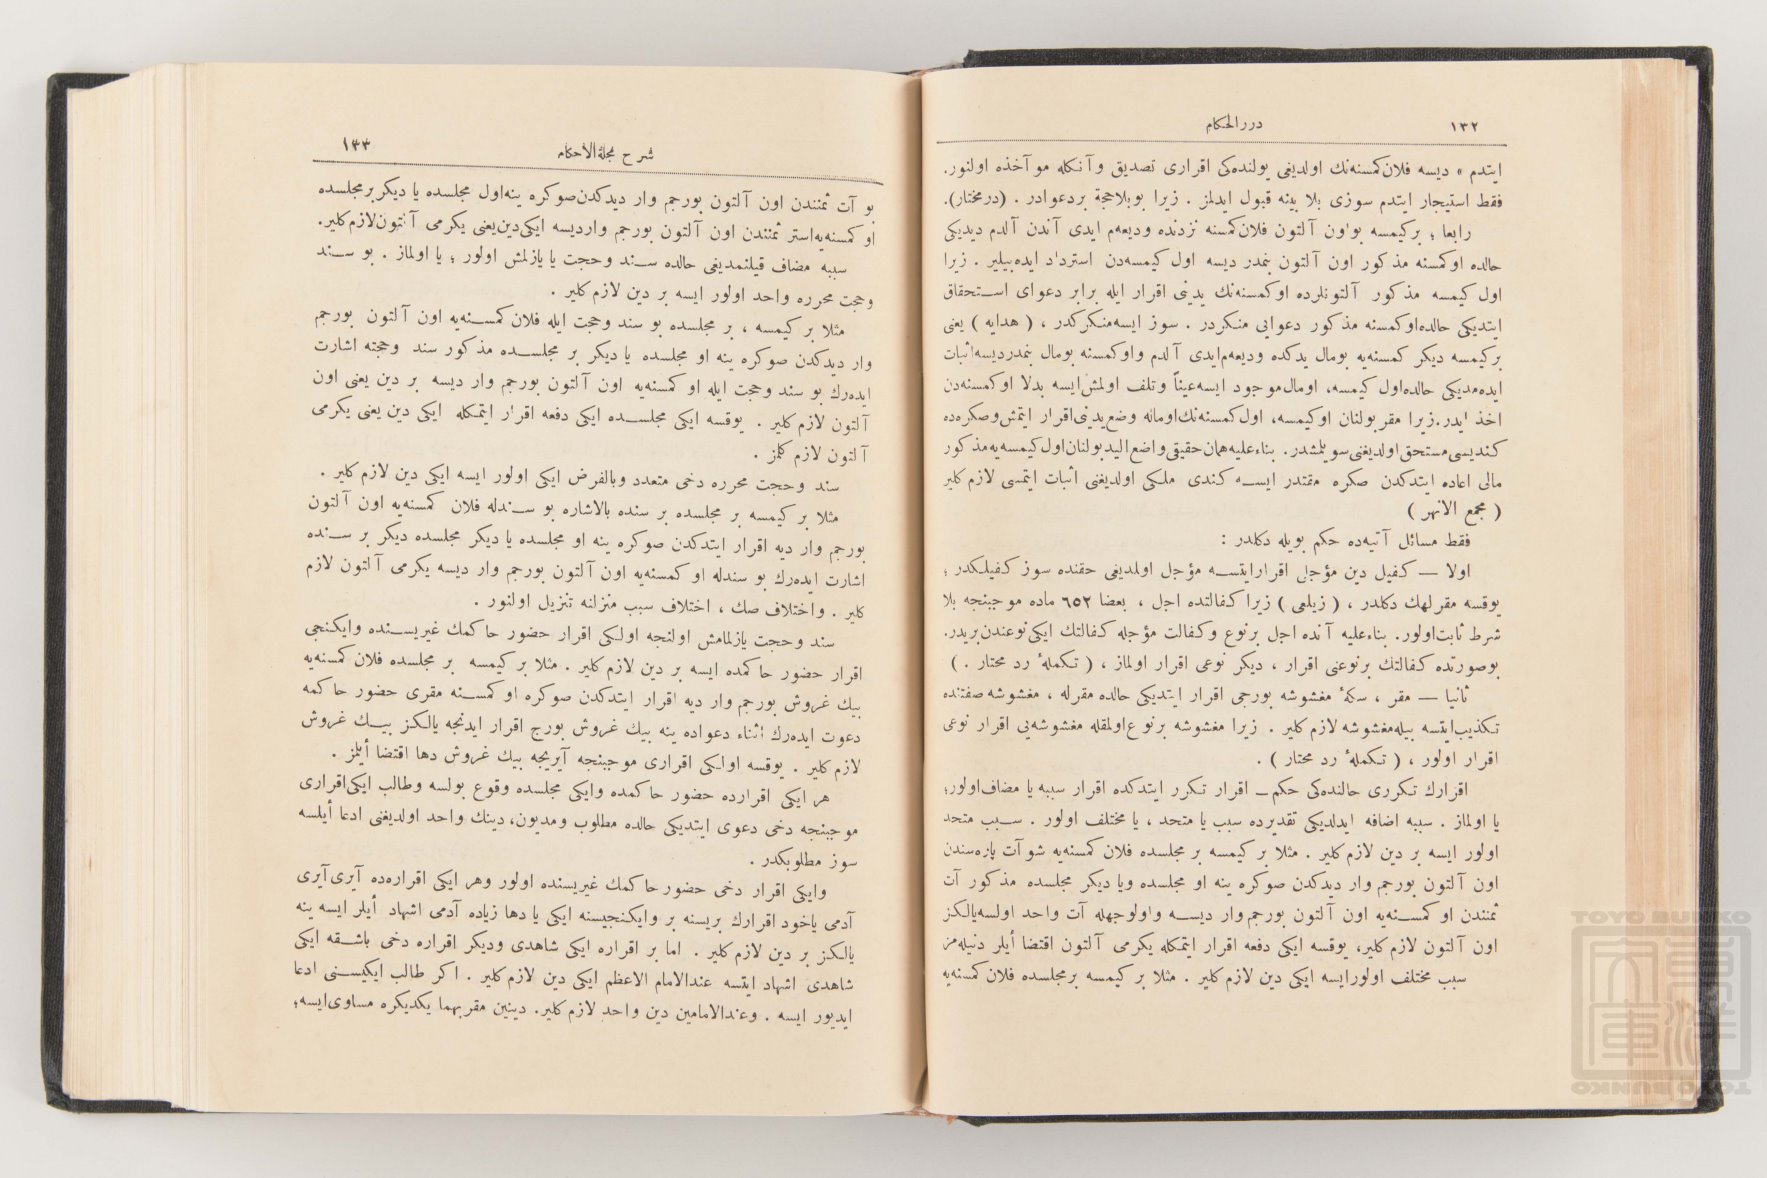 ١٣٢
درر الحكام
ايتدم » ديسه فلان كمسنه‌نك اولديغى يولنده‌كى اقرارى تصديق وآنكله مو آخذه اولنور.
فقط استيجار ايتدم سوزى بلا بينه قبول ايدلمز . زيرا بو بلا حجة بر دعوادر . (در مختار).
رابعا ؛ بر كيمسه بو اون آلتون فلان كمسنه نزدنده وديعه‌م ايدى آندن آلدم ديديكى
حالده او كمسنه مذكور اون آلتون بنمدر ديسه اول كيمسه‌دن استرداد ايده‌بيلير . زيرا
اول كيمسه مذكور آلتونلرده او كمسنه‌نك يدينى اقرار ايله برابر دعواى استحقاق
ايتديكى حالده او كمسنه مذكور دعوايى منكردر . سوز ايسه منكركدر ، ( هدايه ) يعنى
بر كيمسه ديكر كمسنه‌يه بو مال يدكده وديعه‌م ايدى آلدم واو كمسنه بو مال بنمدر ديسه اثبات
ايده‌مديكى حالده اول كيمسه، او مال موجود ايسه عيناً وتلف اولمش ايسه بدلا او كمسنه‌دن
اخذ ايدر. زيرا مقر بولنان او كيمسه، اول كمسنه‌نك او ماله وضع يدينى اقرار ايتمش وصكره‌ده
كنديسى مستحق اولديغنى سويلمشدر. بناء عليه همان حقيقى واضع اليد بولنان اول كيمسه‌يه مذكور
مالى اعاده ايتدكدن صكره مقتدر ايسه كندى ملكى اولديغنى اثبات ايتمسى لازم كلير
( مجمع الانهر )
فقط مسائل آتيه‌ده حكم بويله دكلدر :
اولا — كفيل دين مؤجلى اقرار ايتسه مؤجل اولمديغى حقنده سوز كفيلكدر ؛
يوقسه مقر لهك دكلدر ، ( زيلعى ) زيرا كفالتده اجل ، بعضا ٦٥٢ ماده موجبنجه بلا
شرط ثابت اولور. بناء عليه آنده اجل بر نوع وكفالت مؤجله كفالتك ايكى نوعندن بريدر.
بو صورتده كفالتك بر نوعنى اقرار ، ديكر نوعى اقرار اولماز ، ( تكملهٔ رد محتار . )
ثانيا — مقر ، سكهٔ مغشوشه بورجى اقرار ايتديكى حالده مقر له ، مغشوشه صفتنده
تكذيب ايتسه بيله مغشوشه لازم كلير . زيرا مغشوشه بر نوع اولمقله مغشوشه‌يى اقرار نوعى
اقرار اولور ، ( تكملهٔ رد محتار ) .
اقرارك تكررى حالنده‌كى حكم — اقرار تكرر ايتدكده اقرار سببه يا مضاف اولور؛
يا اولماز . سببه اضافه ايدلديكى تقديرده سبب يا متحد ، يا مختلف اولور . سبب متحد
اولور ايسه بر دين لازم كلير . مثلا بر كيمسه بر مجلسده فلان كمسنه‌يه شو آت پاره‌سندن
اون آلتون بورجم وار ديدكدن صوكره ينه او مجلسده ويا ديكر مجلسده مذكور آت
ثمنندن او كمسنه‌يه اون آلتون بورجم وار ديسه واولوجهله آت واحد اولسه يالكز
اون آلتون لازم كلير، يوقسه ايكى دفعه اقرار ايتمكله يكرمى آلتون اقتضا أيلر دنيله‌مز
سبب مختلف اولور ايسه ايكى دين لازم كلير . مثلا بر كيمسه بر مجلسده فلان كمسنه‌يه
شرح مجلة الاحكام
١٣٣
بو آت ثمنندن اون آلتون بورجم وار ديدكدن صوكره ينه اول مجلسده يا ديكر بر مجلسده
او كمسنه‌يه استر ثمنندن اون آلتون بورجم وار ديسه ايكى دين يعنى يكرمى آلتون لازم كلير.
سببه مضاف قيلنمديغى حالده سند وحجت يا يازلمش اولور ؛ يا اولماز . بو سند
وحجت محرره واحد اولور ايسه بر دين لازم كلير .
مثلا بر كيمسه ، بر مجلسده بو سند وحجت ايله فلان كمسنه‌يه اون آلتون بورجم
وار ديدكدن صوكره ينه او مجلسده يا ديكر بر مجلسده مذكور سند وحجته اشارت
ايده‌رك بو سند وحجت ايله او كمسنه‌يه اون آلتون بورجم وار ديسه بر دين يعنى اون
آلتون لازم كلير . يوقسه ايكى مجلسده ايكى دفعه اقرار ايتمكله ايكى دين يعنى يكرمى
آلتون لازم كلمز .
سند وحجت محرره دخى متعدد وبالفرض ايكى اولور ايسه ايكى دين لازم كلير .
مثلا بر كيمسه بر مجلسده بر سنده بالاشاره بو سندله فلان كمسنه‌يه اون آلتون
بورجم وار ديه اقرار ايتدكدن صوكره ينه او مجلسده يا ديكر مجلسده ديكر بر سنده
اشارت ايده‌رك بو سندله او كمسنه‌يه اون آلتون بورجم وار ديسه يكرمى آلتون لازم
كلير . واختلاف صك ، اختلاف سبب منزلنه تنزيل اولنور .
سند وحجت يازلمامش اولنجه اولكى اقرار حضور حاكمك غيريسنده وايكنجى
اقرار حضور حاكمده ايسه بر دين لازم كلير . مثلا بر كيمسه بر مجلسده فلان كمسنه‌يه
بيك غروش بورجم وار ديه اقرار ايتدكدن صوكره او كمسنه مقرى حضور حاكمه
دعوت ايده‌رك اثناء دعواده ينه بيك غروش بورج اقرار ايدنجه يالكز بيك غروش
لازم كلير . يوقسه اولكى اقرارى موجبنجه آيريجه بيك غروش دها اقتضا أيلمز .
هر ايكى اقرارده حضور حاكمده وايكى مجلسده وقوع بولسه وطالب ايكى اقرارى
موجبنجه دخى دعوى ايتديكى حالده مطلوب ومديون، دينك واحد اولديغنى ادعا أيلسه
سوز مطلوبكدر .
وايكى اقرار دخى حضور حاكمك غيريسنده اولور وهر ايكى اقراره‌ده آيرى آيرى
آدمى ياخود اقرارك بريسنه بر وايكنجيسنه ايكى يا دها زياده آدمى اشهاد أيلر ايسه ينه
يالكز بر دين لازم كلير . اما بر اقراره ايكى شاهدى وديكر اقراره دخى باشقه ايكى
شاهدى اشهاد ايتسه عند الامام الاعظم ايكى دين لازم كلير . اكر طالب ايكيسنى ادعا
ايديور ايسه . وعند الامامين دين واحد لازم كلير. دينين مقر بهما يكديكره مساوى ايسه؛
TOYO BUNKO